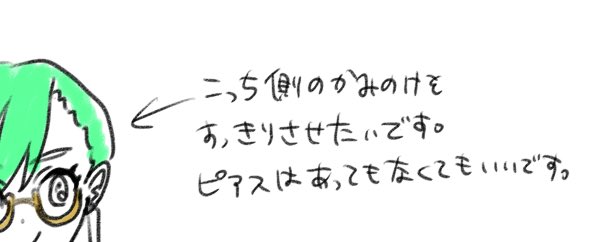 こっち側のかみのけを
すっきりさせたいです。
ピアスはあってもなくてもいいです。